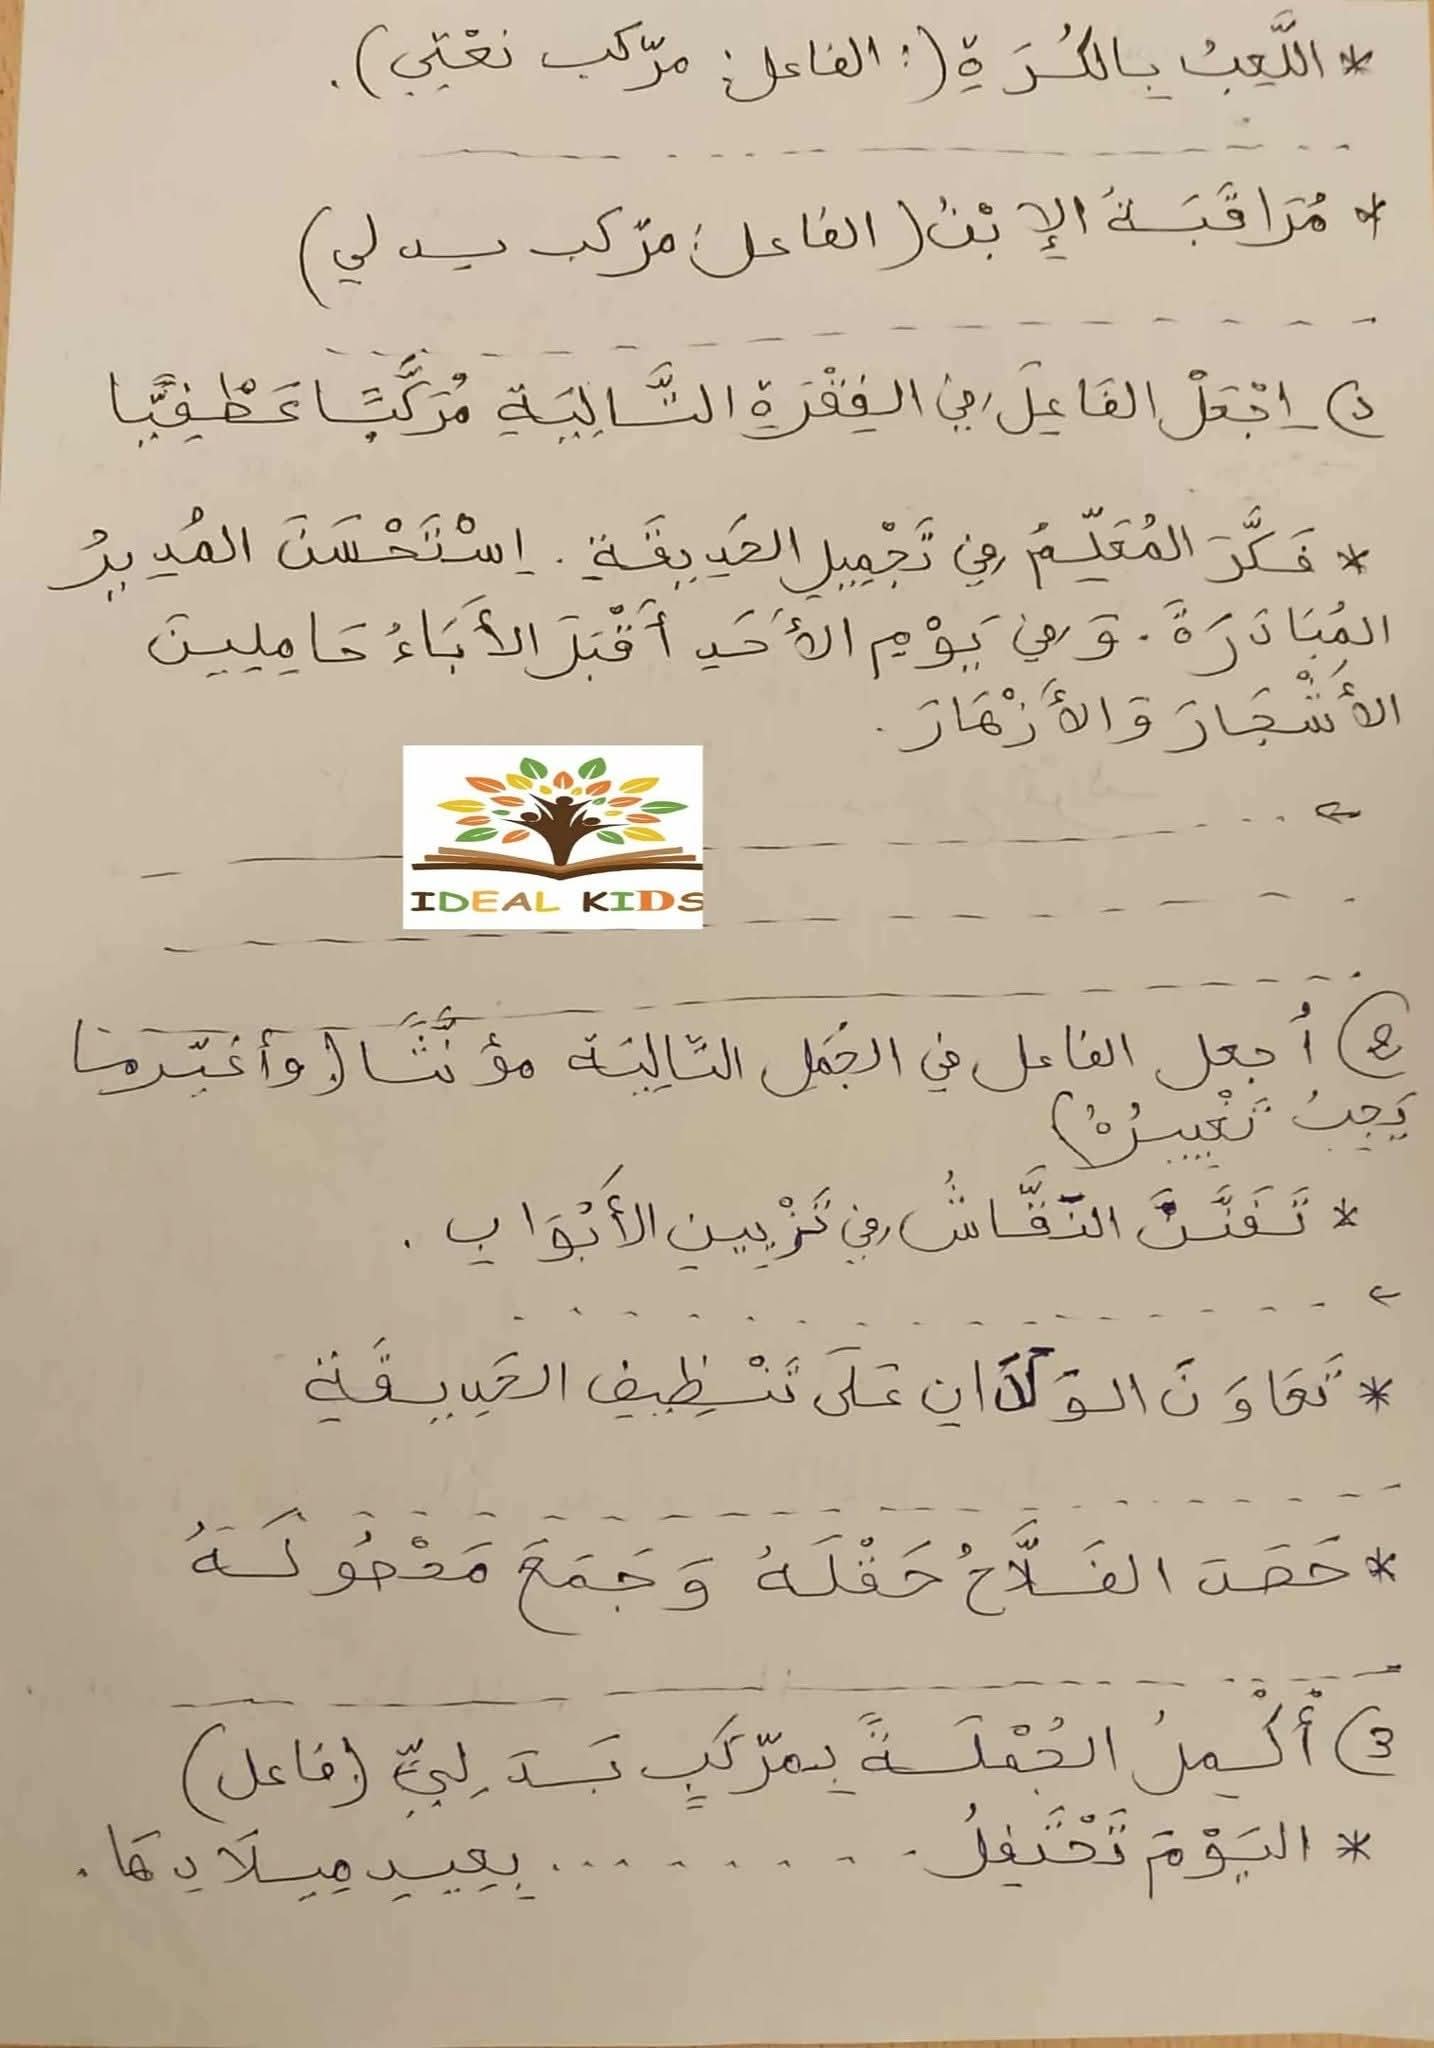 * اللَّعِبُ بِالكُرَةِ (: الفاعل: مركّب نعْتِي).
* مُرَاقَبَةُ الإِبْنُ (الفاعل: مركّب بدلي)
1) اِجْعَلْ الفَاعِلَ فِي الفِقْرَةِ التَّالِيَةِ مُرَكَّبًا عَطْفِيًّا
* فَكَّرَ المُعَلِّمُ فِي تَجْمِيلِ الحَدِيقَةِ. اِسْتَحْسَنَ المُدِيرُ
المُبَادَرَةَ. وَفِي يَوْمِ الأَحَدِ أَقْبَلَ الأَبَاءُ حَامِلِينَ
الأَشْجَارَ وَالأَزْهَارَ.
IDEAL KIDS
2) أُجعل الفاعل في الجُمَلِ التّالِيَة مؤنَّثًا (وأغيّر ما
يَجِبُ تَغْيِيرُهُ)
* تَفَنَّنَ النَّقَّاشُ فِي تَزْيِينِ الأَبْوَابِ.
* تَعَاوَنَ الوَلَدَانِ عَلَى تَنْظِيفِ الحَدِيقَةِ
* حَصَدَ الفَلَّاحُ حَقْلَهُ وَجَمَعَ مَحْصُولَهُ
3) أُكْمِلُ الجُمْلَةَ بِمركّبٍ بَدَلِيٍّ (فاعل)
* اليَوْمَ تَحْتَفِلُ .......... بِعِيدِ مِيلَادِهَا.